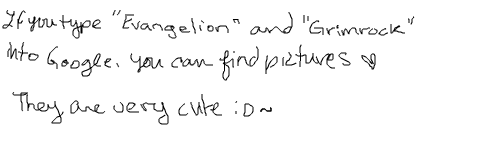 If you type "Evangelion" and "Grimrock"
into Google, you can find pictures ♡
They are very cute :D~